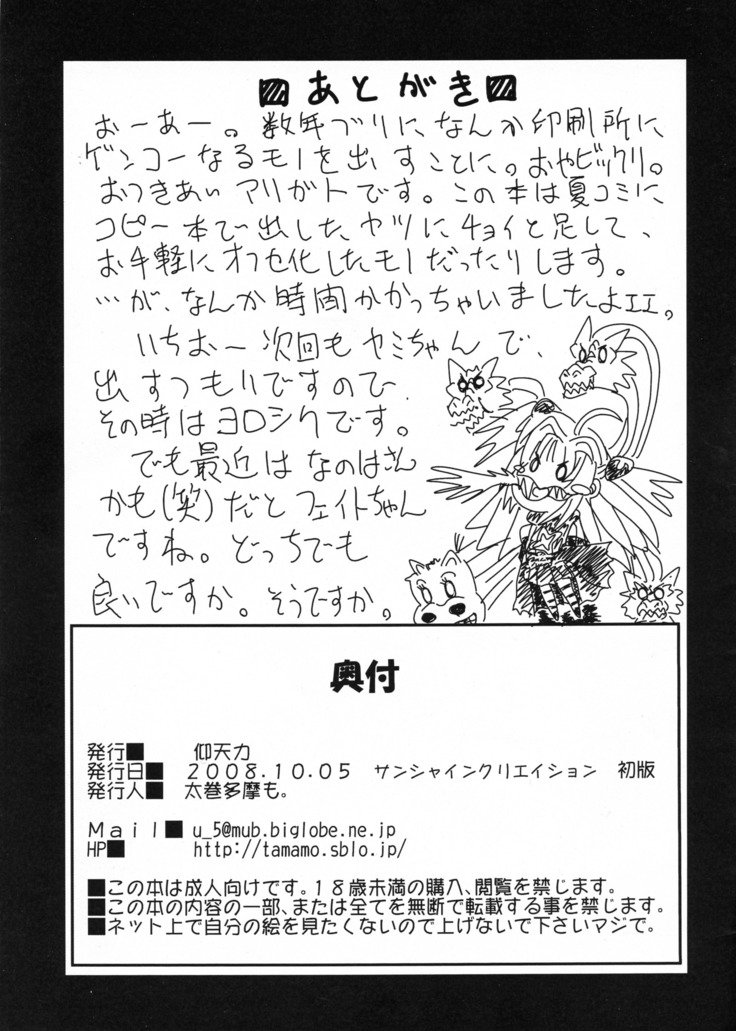 あとがき
おーあー。数年ブリに、なんか印刷所に
ゲンコーなるモノを出すことに。おやビックリ。
おつきあい アリガトです。この本は夏コミに
コピー本で出した、ヤツにチョイと足して、
お手軽にオフセ化したモノだったりします。
…が、なんか時間かかっちゃいましたよエエ。
いちおー次回もヤミちゃんで、
出すつもりですので
その時はヨロシクです。
でも最近はなのはさん
かも(笑)だとフェイトちゃん
ですね。どっちでも
良いですか。そうですか。
奥付
発行■ 仰天力
発行日■ 2008.10.05 サンシャインクリエイション 初版
発行人■ 太巻多摩も。
Mail■ u_5@mub.biglobe.ne.jp
HP■ http://tamamo.sblo.jp/
■この本は成人向けです。18歳未満の購入、閲覧を禁じます。
■この本の内容の一部、または全てを無断で転載する事を禁じます。
■ネット上で自分の絵を見たくないので上げないで下さいマジで。